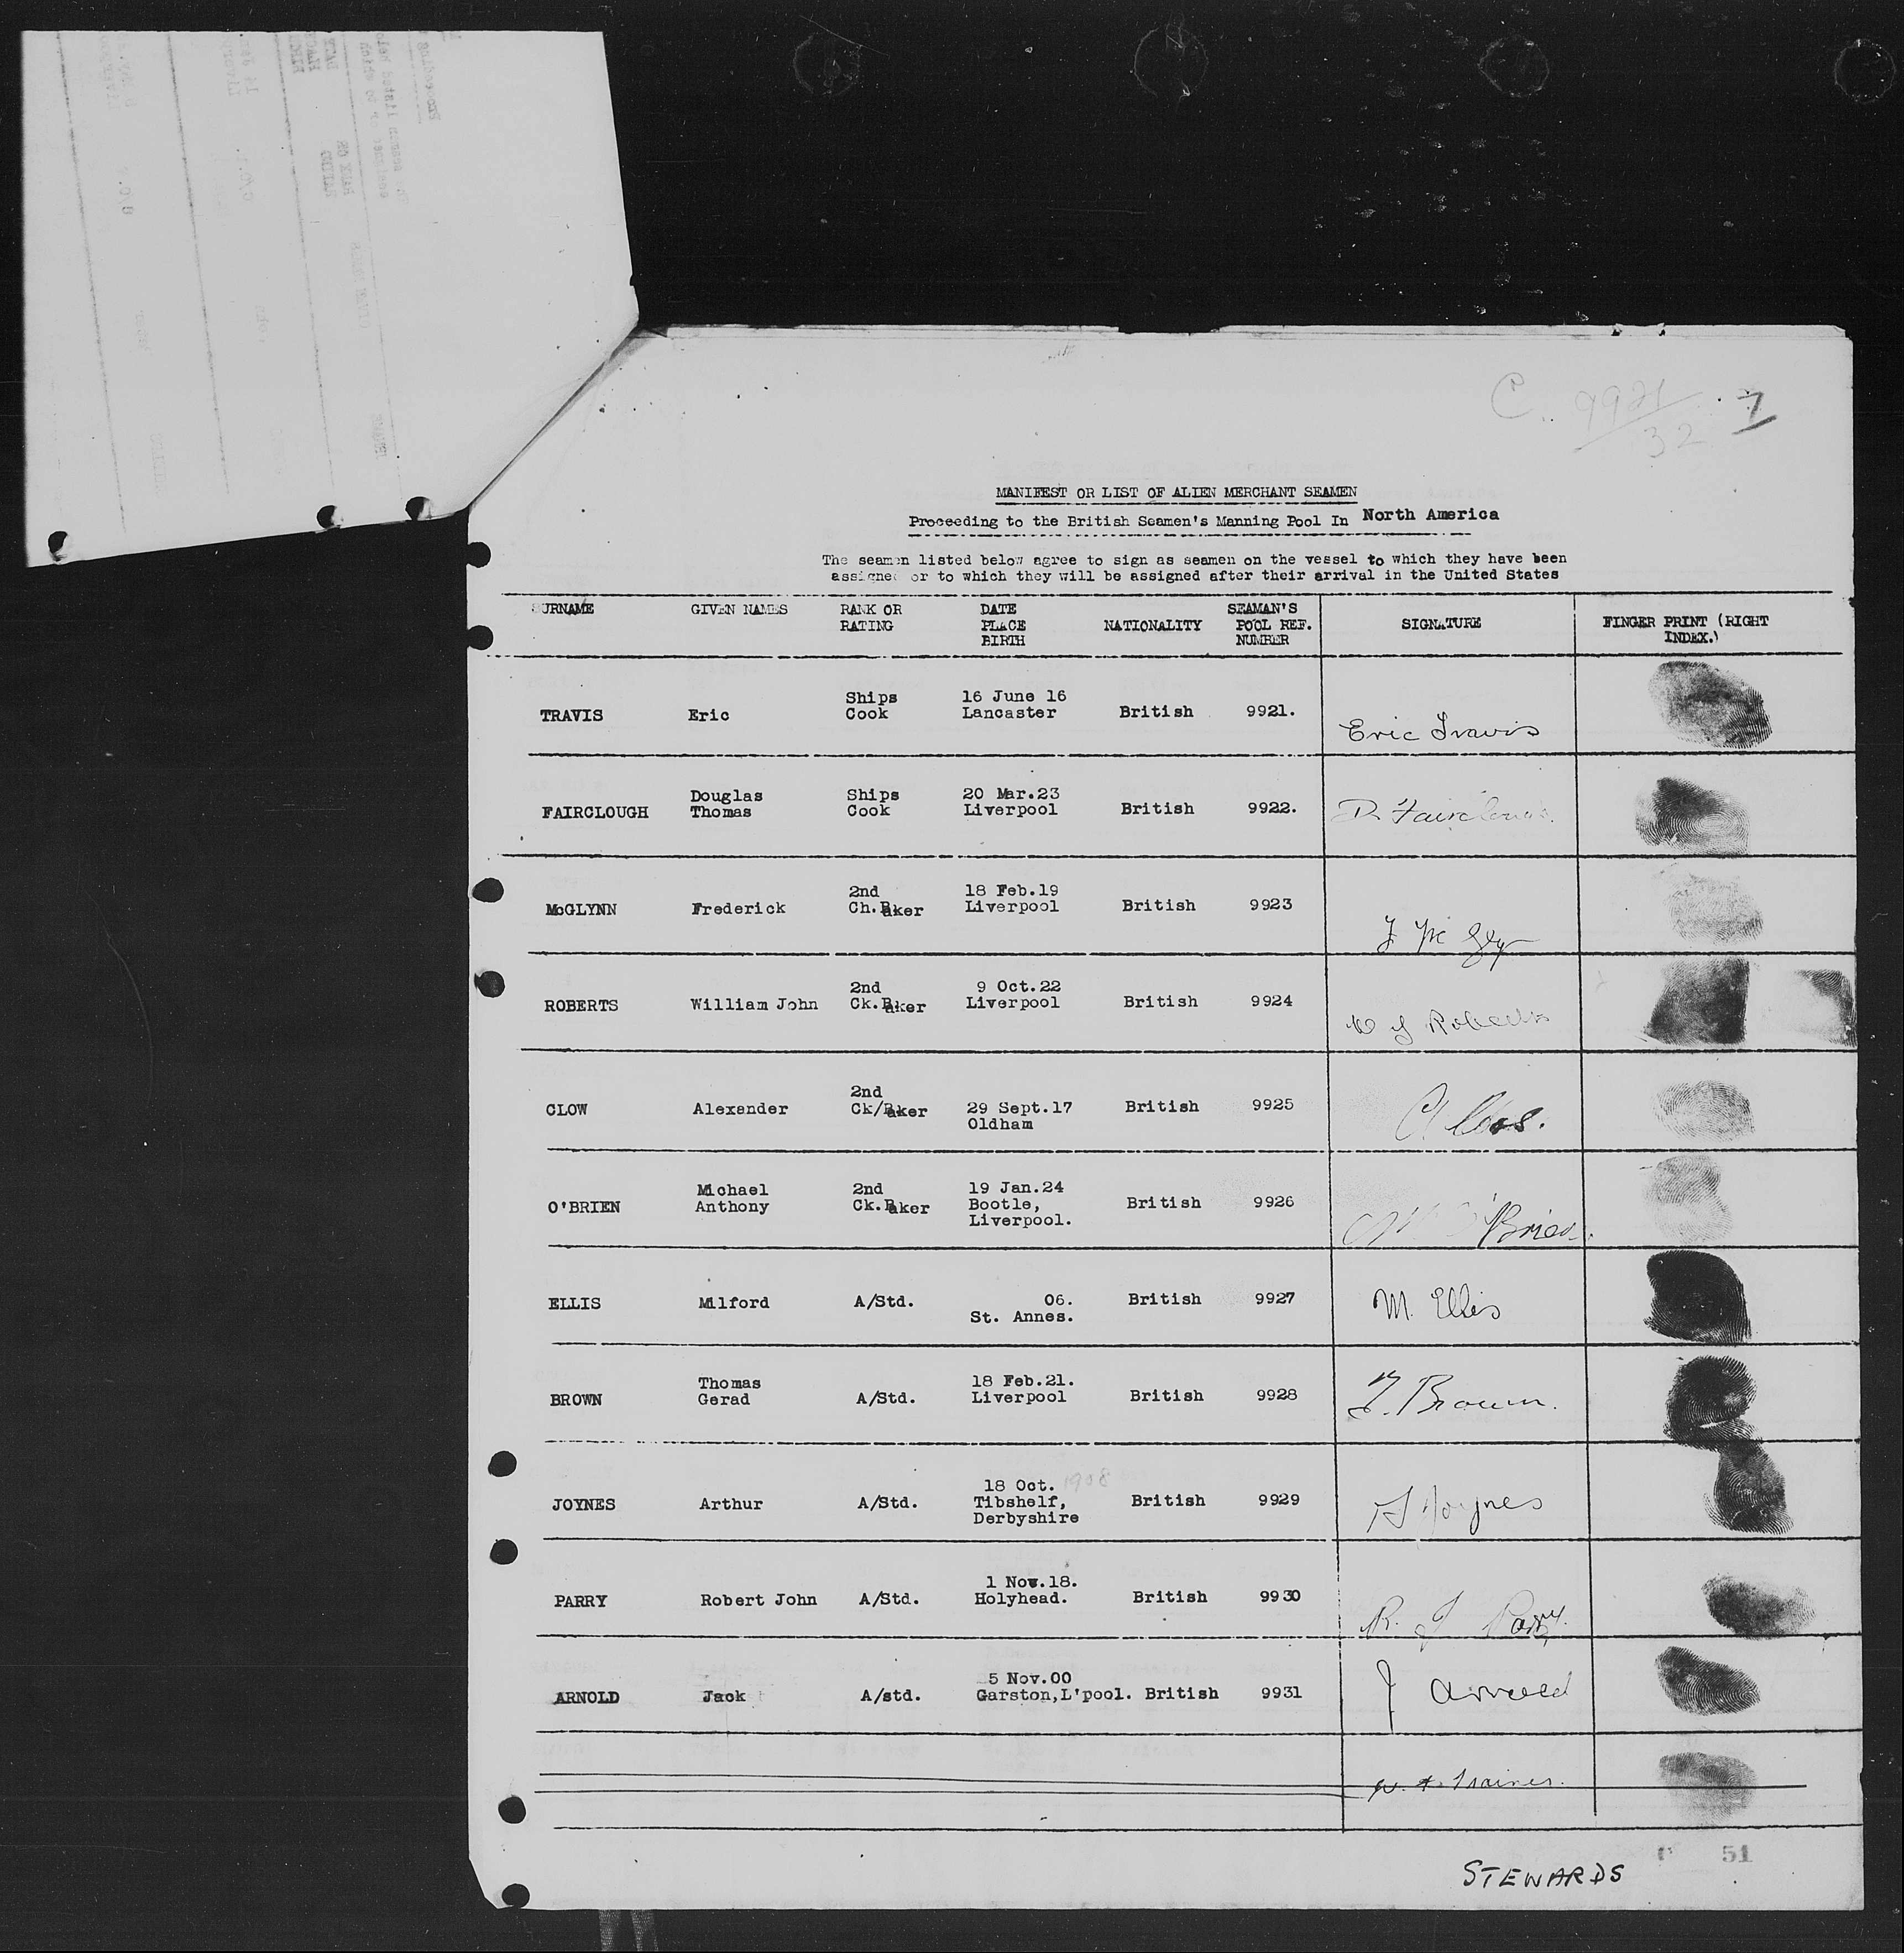 C. 9921/32 7
MANIFEST OR LIST OF ALIEN MERCHANT SEAMEN
Proceeding to the British Seamen's Manning Pool In North America
The seamen listed below agree to sign as seamen on the vessel to which they have been
assigned or to which they will be assigned after their arrival in the United States
SURNAME GIVEN NAMES RANK OR RATING DATE PLACE BIRTH NATIONALITY SEAMAN'S POOL REF. NUMBER SIGNATURE FINGER PRINT (RIGHT INDEX.)
TRAVIS Eric Ships Cook 16 June 16 Lancaster British 9921. Eric Travis
FAIRCLOUGH Douglas Thomas Ships Cook 20 Mar.23 Liverpool British 9922. D. Fairclough.
McGLYNN Frederick 2nd Ch.Baker 18 Feb.19 Liverpool British 9923 F Mc Gly
ROBERTS William John 2nd Ck.Baker 9 Oct.22 Liverpool British 9924 W J Roberts
CLOW Alexander 2nd Ck/Baker 29 Sept.17 Oldham British 9925
O'BRIEN Michael Anthony 2nd Ck.Baker 19 Jan.24 Bootle, Liverpool. British 9926 M O'Brien.
ELLIS Milford A/Std. 06. St. Annes. British 9927 M. Ellis
BROWN Thomas Gerad A/Std. 18 Feb.21. Liverpool British 9928 T. Brown.
JOYNES Arthur A/Std. 18 Oct. 1908 Tibshelf, Derbyshire British 9929 A Joynes
PARRY Robert John A/Std. 1 Nov.18. Holyhead. British 9930 R. J Parry.
ARNOLD Jack A/std. 5 Nov.00 Garston,L'pool. British 9931 J Arnold
STEWARDS
C 51